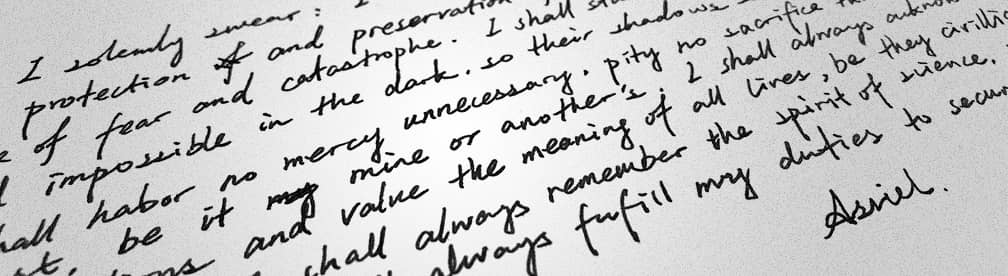 I solemly swear :
protection of and preservation
of fear and catastrophe. I shall
impossible in the dark. so their shadows
hall habor no mercy unnecessary. pity no sacrifice
be it mine or another's. I shall always acknow
and value the meaning of all lives, be they civilli
shall always remember the spirit of science.
always fulfill my duties to secur
Asriel.